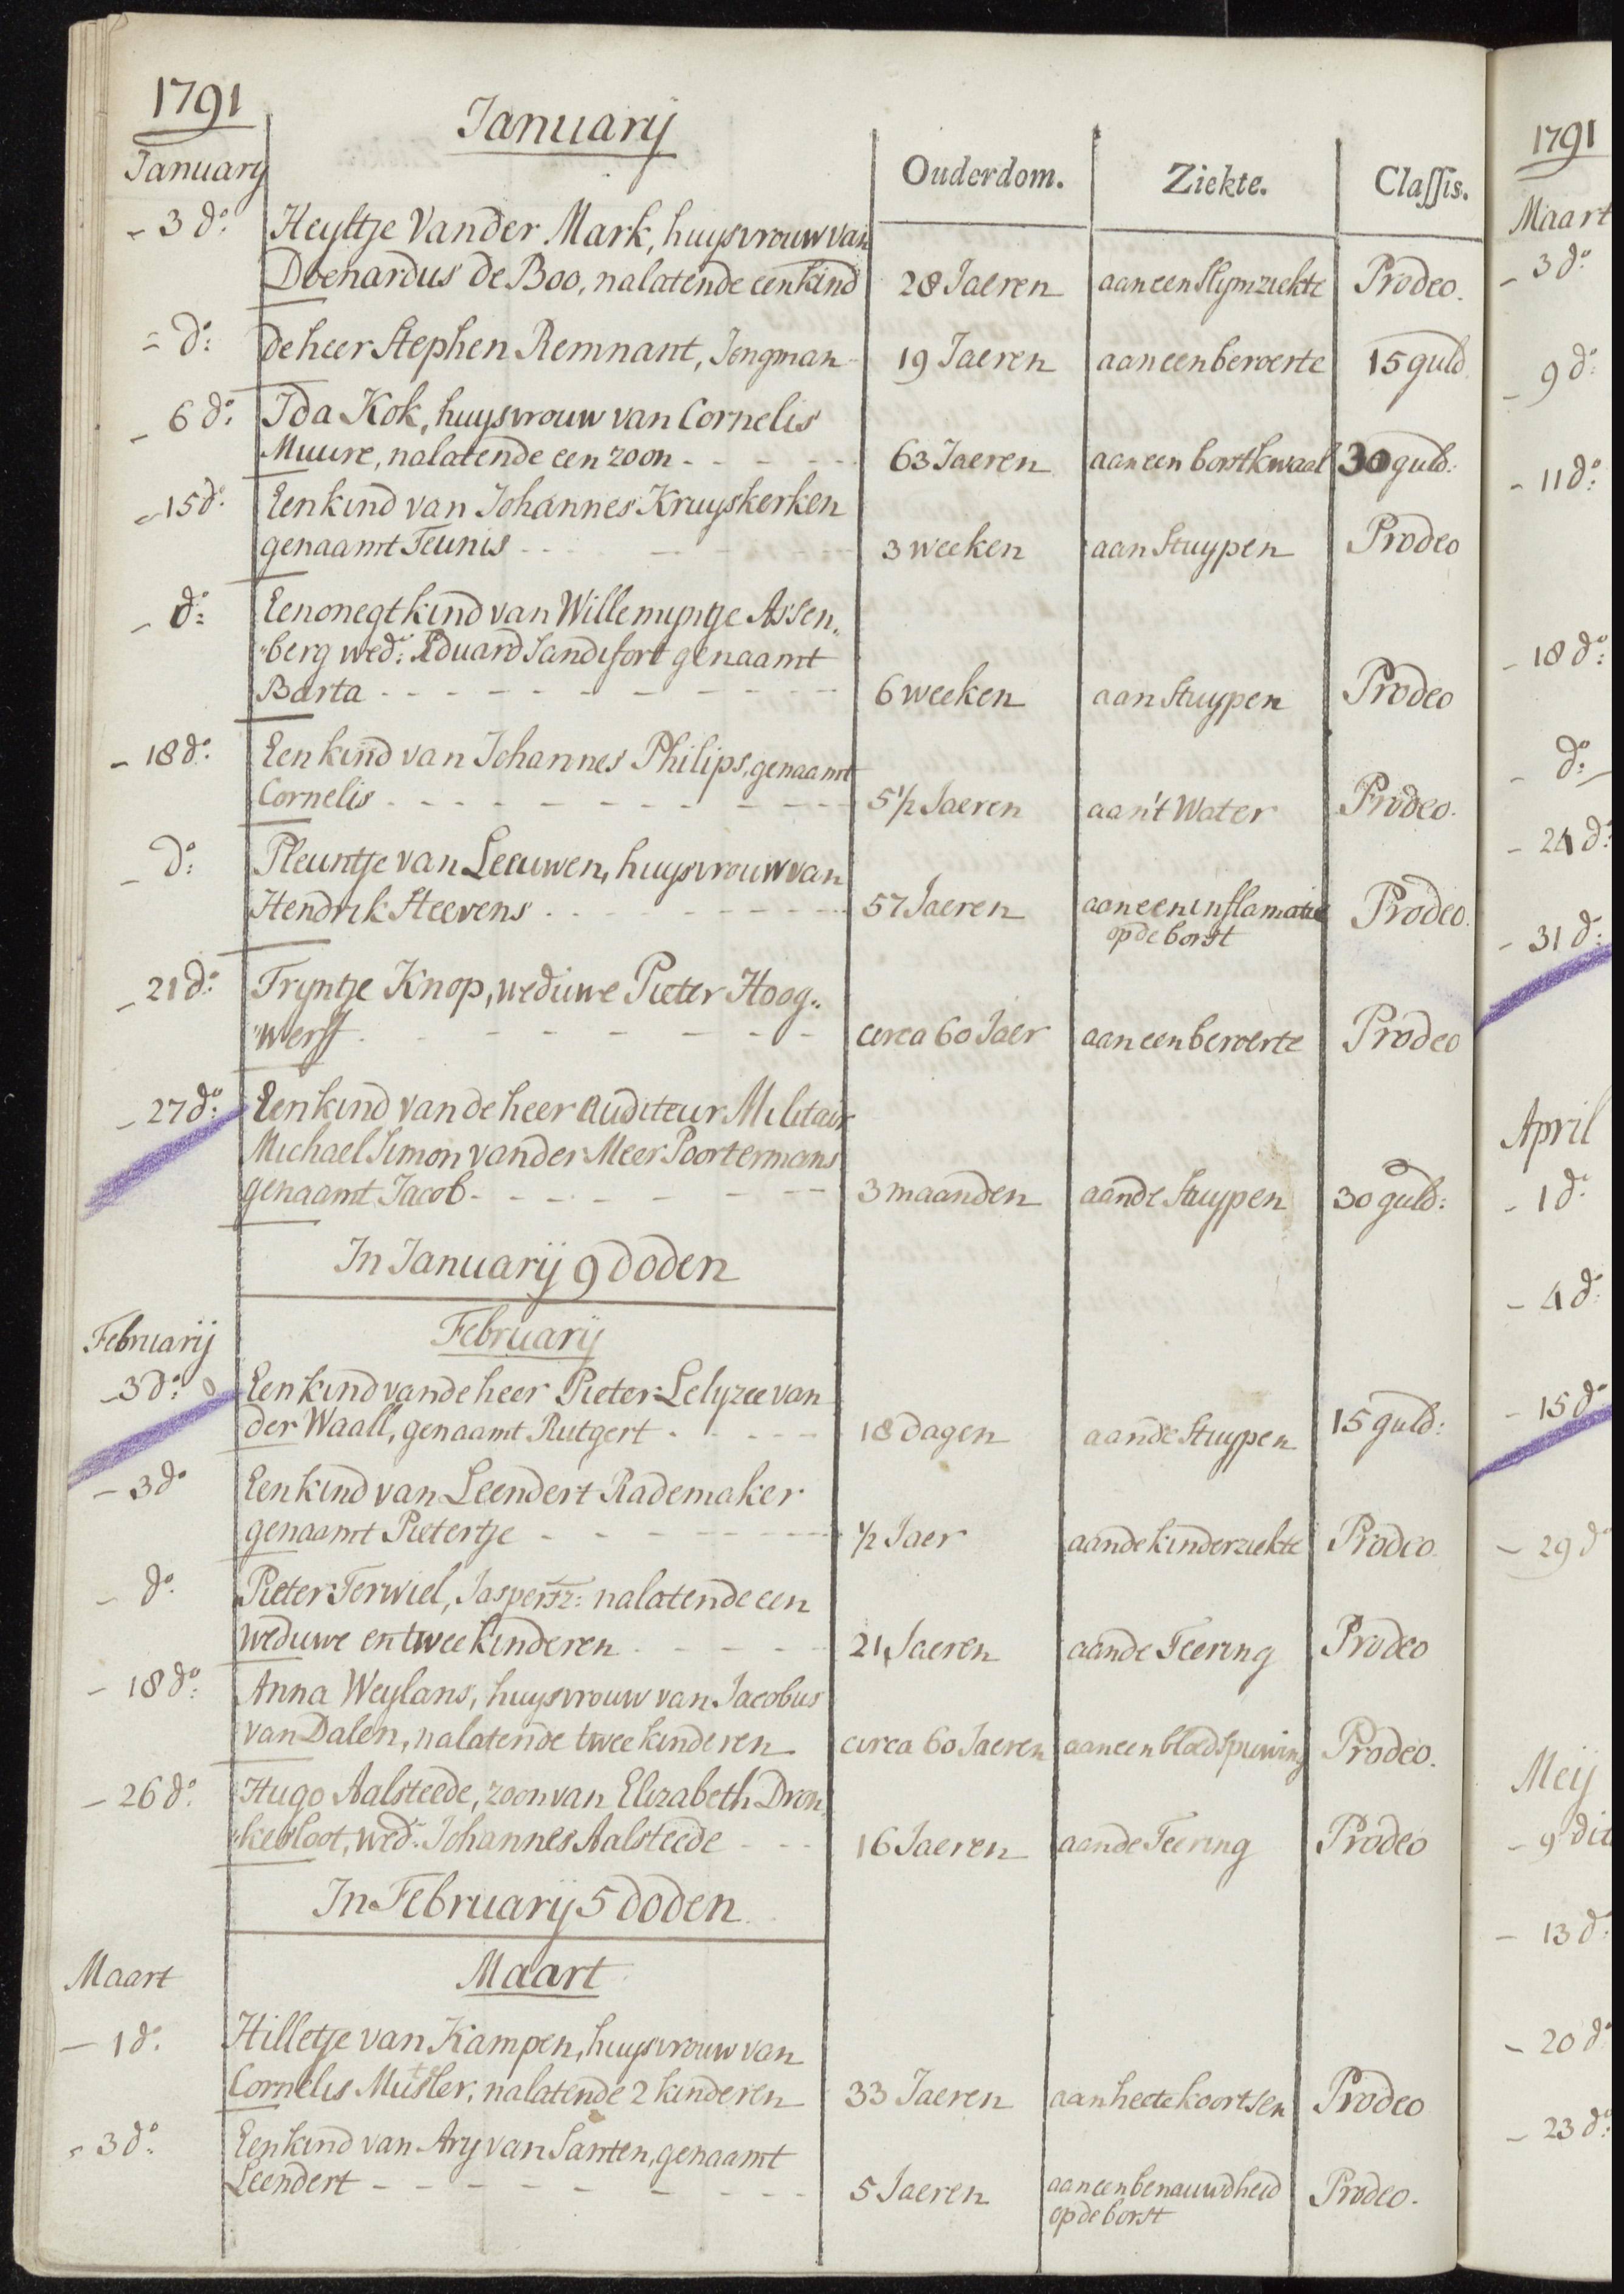 1791
Januarij
January
Ouderdom.
Ziekte.
Classis.
- 3 do: Heyltje Vander Mark, huysvrouw van
Doenardus de Boo, nalatende een kind 28 Jaeren aan een Slymziekte Prodeo.
= do: de heer Stephen Remnant, Jongman 19 Jaeren aan een beroerte 15 guld
- 6 do: Ida Kok, huysvrouw van Cornelis
Muure, nalatende een zoon - - - - 63 Jaeren aan een borstkwaal 30 guld:
- 15 do: Een kind van Johannes Kruyskerken
genaamt Teunis - - - - 3 weeken aan Stuypen Prodeo
- do: Een onegt kind van Willemyntje Assen„
„berg wed: Eduard Sandifort genaamt
Barta - - - - - - - - - - 6 weeken aan Stuypen Prodeo
- 18 do: Een kind van Johannes Philips, genaamt
Cornelis - - - - - - - - - - 5 1/2 Jaeren aan't Water Prodeo.
- do: Pleuntje van Leeuwen, huysvrouw van
Hendrik Steevens - - - - - - - 57 Jaeren aan een inflamatie Prodeo.
op de borst
- 21 do: Tryntje Knop, weduwe Pieter Hoog„
„werff - - - - - - - circa 60 Jaer aan een beroerte Prodeo
- 27 do: Een kind van de heer Auditeur Militair
Michael Simon vander Meer Poortermans
genaamt Jacob - - - - - - - - 3 maanden aan de Stuypen 30 guld:
In Januarij 9 doden
Februarij
Februarij
- 3 do: Een kind van de heer Pieter Lelyzee van
der Waall, genaamt Rutgert - - - - - 18 dagen aan de Stuypen 15 guld:
- 3 do Een kind van Leendert Rademaker
genaamt Pietertje - - - - - - - 1/2 Jaer aan de kinderziekte Prodeo.
- do: Pieter Terwiel, Jaspersz: nalatende een
weduwe en twee kinderen - - - - - 21 Jaeren aan de Teering Prodeo
- 18 do: Anna Weylans, huysvrouw van Jacobus
van Dalen, nalatende twee kinderen circa 60 Jaeren aan een bloedspuwing Prodeo.
- 26 do: Hugo Aalsteede, zoon van Elizabeth Dron„
„kersloot, wed: Johannes Aalsteede - - - 16 Jaeren aan de Teering Prodeo
In Februarij 5 doden
Maart
Maart
- 1 do: Hilletje van Kampen, huysvrouw van
Cornelis nalatende 2 kinderen 33 Jaeren aan heete koortsen Prodeo
- 3 do: Een kind van Ary van Santen, genaamt
Leendert - - - - - - - - - 5 Jaeren aan een benauwdheid Prodeo.
op de borst
1791
Maart
- 3 do:
- 9 do:
- 11 do:
- 18 do:
- do:
- 24 do:
- 31 do:
April
- 1 do:
- 4 do:
- 15 do:
- 29 do
Meij
- 9 dit
- 13 do:
- 20 do
- 23 do: